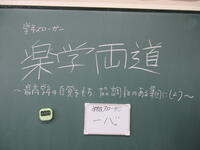 学年スローガン
楽学両道
～最高学年の自覚をもち、協調性のある集団になろう～
学級スローガン
一心